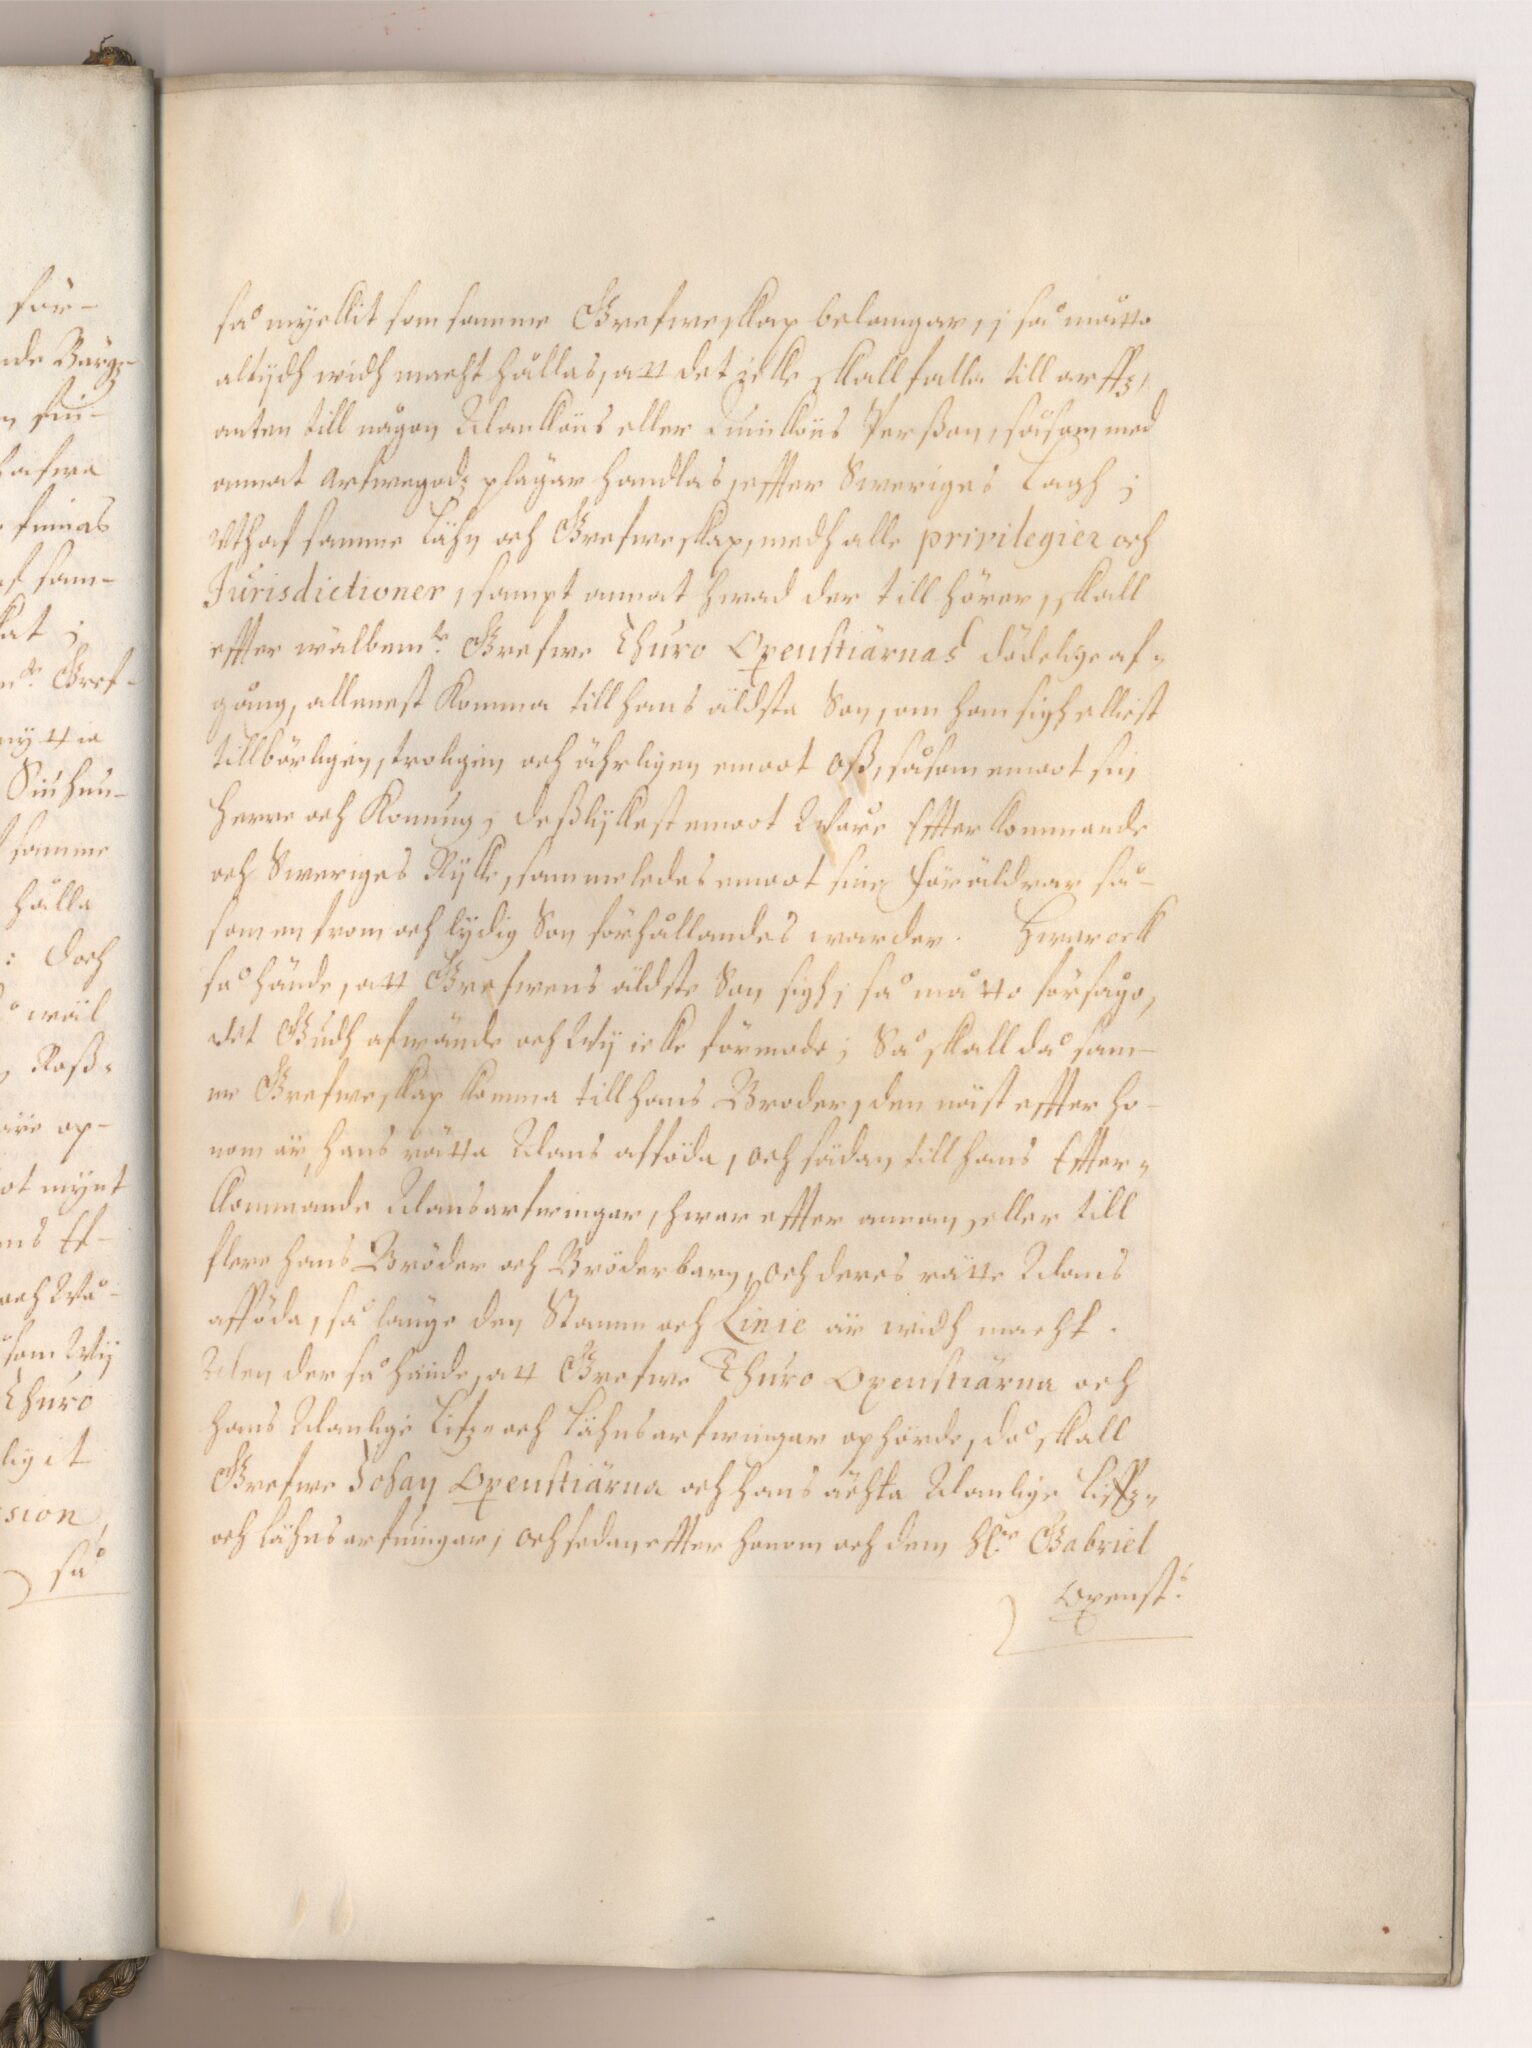 för-
nde Bärgz-
n sin-
hafwa
finnas
af sam-
kat ;
mte. Gref-
nyttia
Siuhun-
samme
hålla
: doch
wäl
Roß=
äre op-
ot mynt
ns Ef-
och Wå-
som Wij
Thuro
ligit
sion,
så
så myckit som samme Grefweskap belangar, i så måtto
altijdh widh macht hållas, att det icke skall falla till arffz,
anten till någon Mankiöns eller Quinkiöns Perßon, såsom med
annat Arfwegodz plägar handlas, effter Sweriges Lagh ;
Uthaf samme Lähn och Grefweskap, medh alle privilegier och
Jurisdictioner, sampt annat hwad der till hörer, skall
effter wälbemte. Grefwe Thuro Oxenstiärnas dödelige af=
gång, allenest komma till hans äldsta Son, om han sigh elliest
tillbörligen, troligen och ährligen emoot Oß, såsom emoot sin
Herre och Konung, deßlijkest emoot Ware Effterkommande
och Sweriges Rijke, sammeledes emoot sine föräldrar så-
som en from och lydig Son förhållandes warder. Hwar ock
så hände, att Grefwens äldste Son sigh i så måtto försågo,
det Gudh afwände och Wij icke förmode ; Så skall då sam-
me Grefweskap komma till hans Broder, den näst effter ho-
nom är, hans rätta Mans afföda, och sädan till hans Effter=
kommande Mansarfwingar, hwar effter annan, eller till
flere hans Bröder och Bröderbarn, och deres rätte Mans
afföda, så länge den Stamm och Linie är widh macht.
Men der så hände, att Grefwe Thuro Oxenstiärna och
hans Manlige Lifz= och Lähnsarfwingar ophörde, då skall
Grefwe Johan Oxenstiärna och hans ächta Manlige Liffz=
och Lähnsarfwingar, och sedan effter honom och dem Hr. Gabriel
Oxenst: